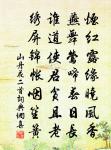 煙紅露綠曉風香
燕舞鶯啼春日長
誰道使君貧且老
繡屏錦帳咽笙簧
山丹花二首詞典網集